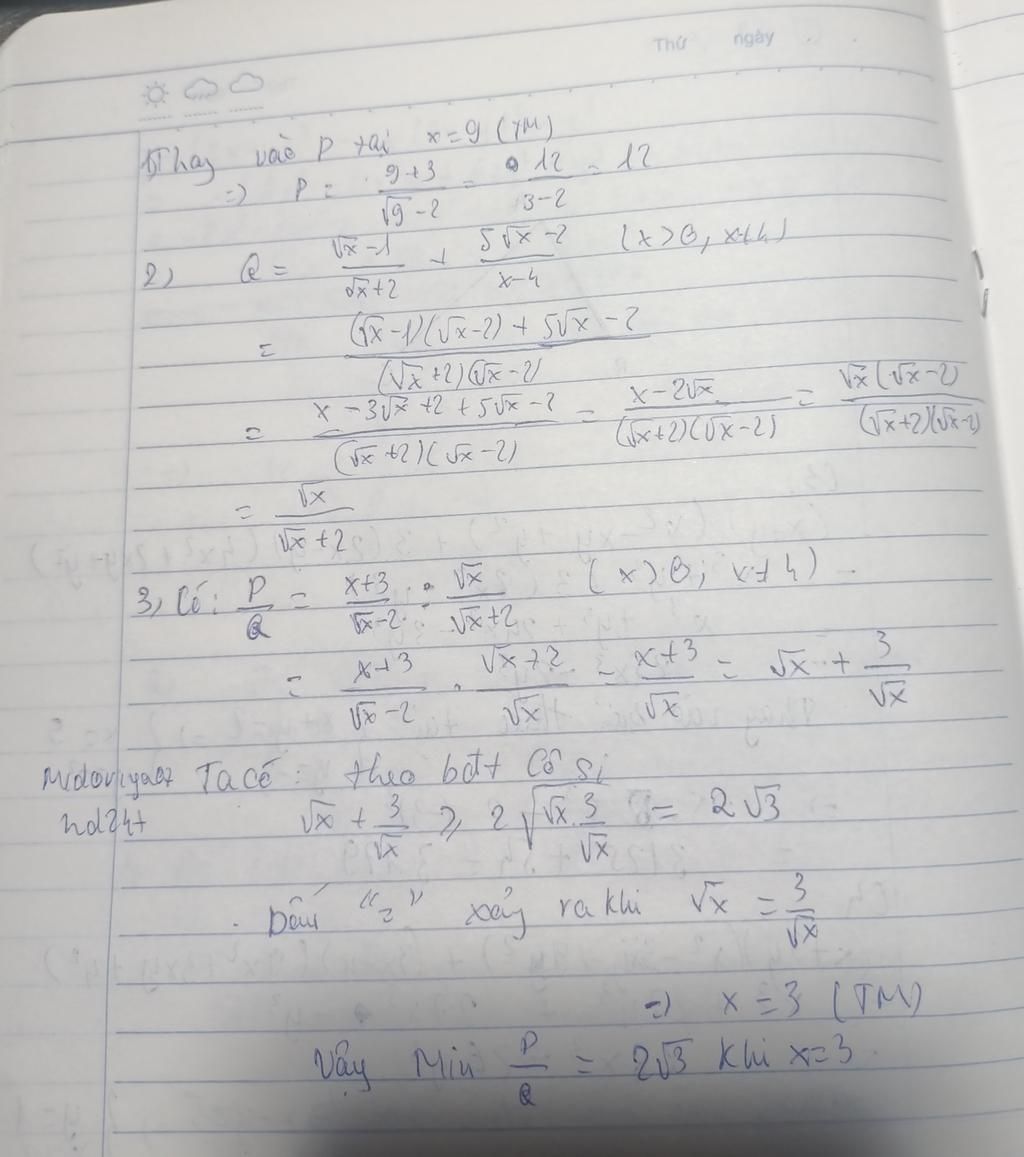 Thứ ngày
1, Thay vào P tại x = 9 (TM)
=> P = (9+3)/(√9 - 2) = 12/(3-2) = 12
2, Q = (√x - 1)/(√x + 2) + (5√x - 2)/(x - 4) (x > 0, x ≠ 4)
= ((√x - 1)(√x - 2) + 5√x - 2)/((√x + 2)(√x - 2))
= (x - 3√x + 2 + 5√x - 2)/((√x + 2)(√x - 2)) = (x - 2√x)/((√x + 2)(√x - 2)) = (√x(√x - 2))/((√x + 2)(√x - 2))
= √x/(√x + 2)
3, Có: P/Q = (x+3)/(√x - 2) : √x/(√x + 2) (x > 0; x ≠ 4).
= (x+3)/(√x - 2) . (√x + 2)/√x = (x+3)/√x = √x + 3/√x
Ta có: theo bđt Cô si
√x + 3/√x ≥ 2√(√x . 3/√x) = 2√3
Dấu "=" xảy ra khi √x = 3/√x
=> x = 3 (TM)
Vậy Min P/Q = 2√3 khi x = 3